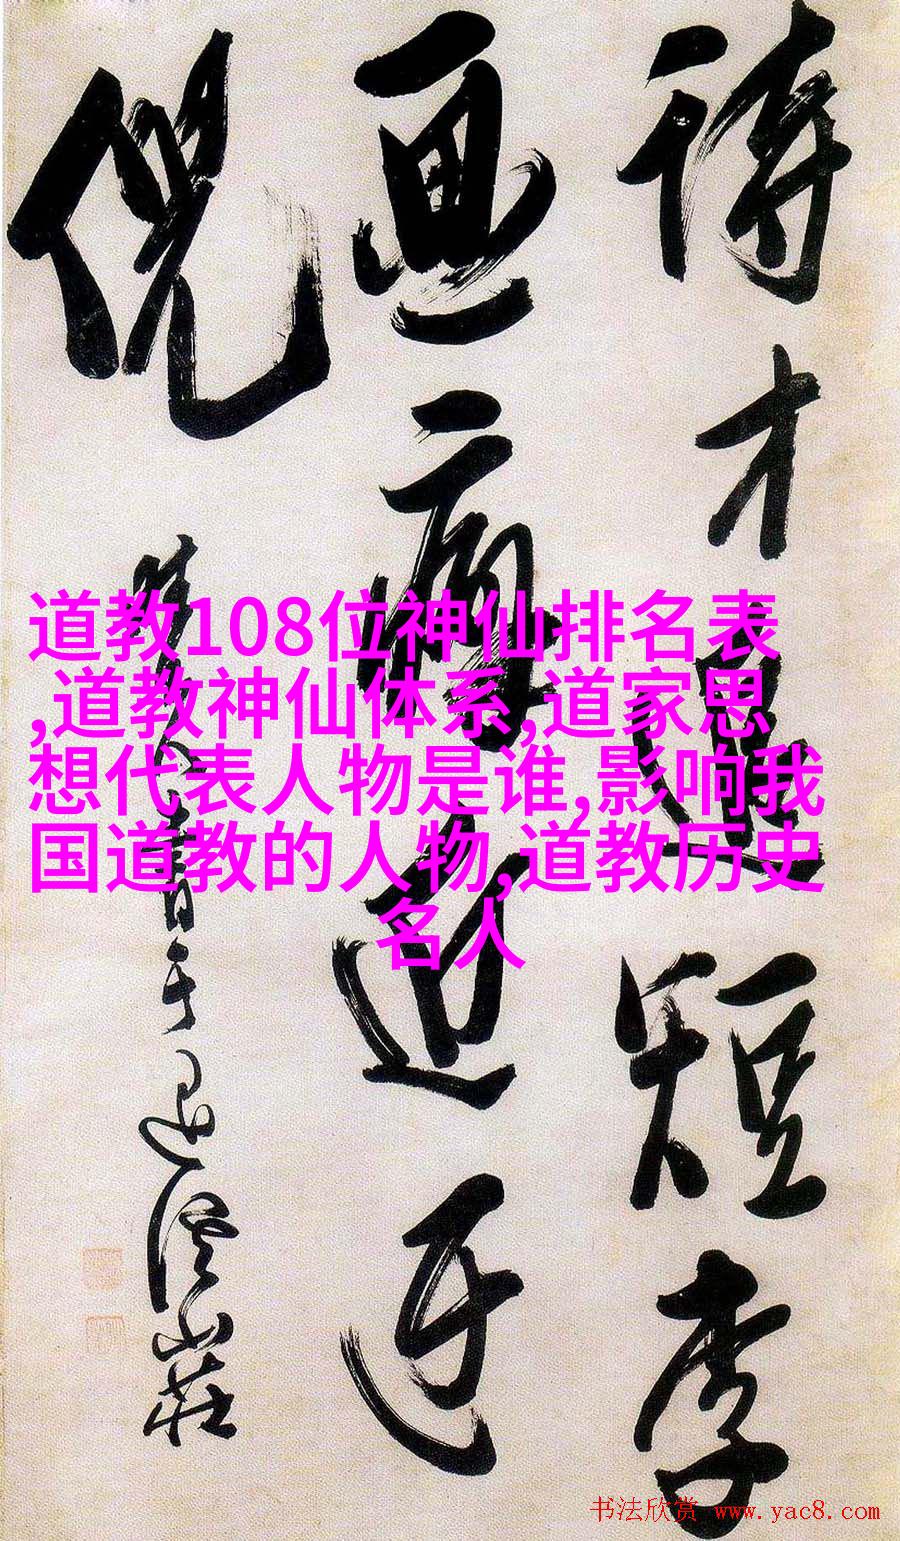 詩才追短李
画癖近迂
倪
道教108位神仙排名表
,道教神仙体系,道家思
想代表人物是谁,影响我
国道教的人物,道教历史
名人
书法欣赏 www.yac8.com